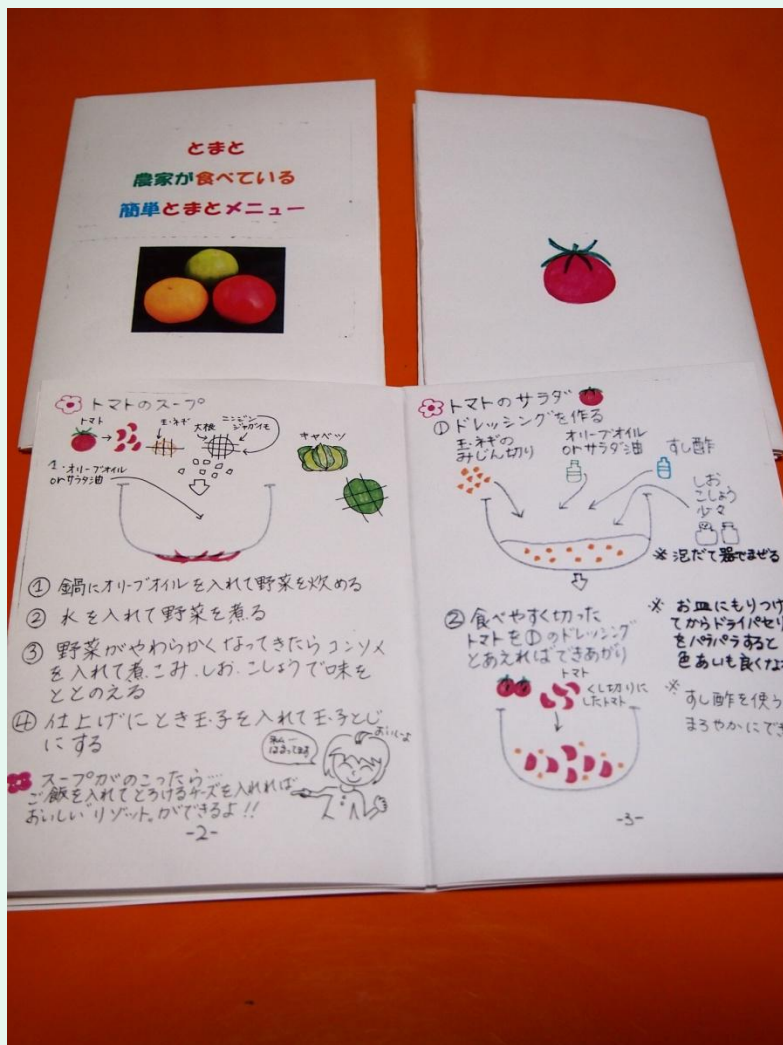 とまと
農家が食べている
簡単とまとメニュー
トマトのスープ
トマト
玉ネギ
大根
ニンジン
ジャガイモ
キャベツ
1.オリーブオイル
orサラダ油
① 鍋にオリーブオイルを入れて野菜を炒める
② 水を入れて野菜を煮る
③ 野菜がやわらかくなってきたらコンソメ
を入れて煮こみ、しお、こしょうで味を
ととのえる
④ 仕上げにとき玉子を入れて玉子とじ
にする
おいしいよ
スープがのこったら…
ご飯を入れてとろけるチーズを入れれば
おいしいリゾットができるよ!!
-2-
トマトのサラダ
①ドレッシングを作る
玉ネギの
みじん切り
オリーブオイル
orサラダ油
すし酢
しお
こしょう
少々
※泡だて器でまぜる
②食べやすく切った
トマトを①のドレッシング
とあえればできあがり
トマト
くし切りに
したトマト
※ お皿にもりつけ
てからドライパセリ
をパラパラすると
色あいも良くなる
※ すし酢を使う
まろやかにでき
-3-